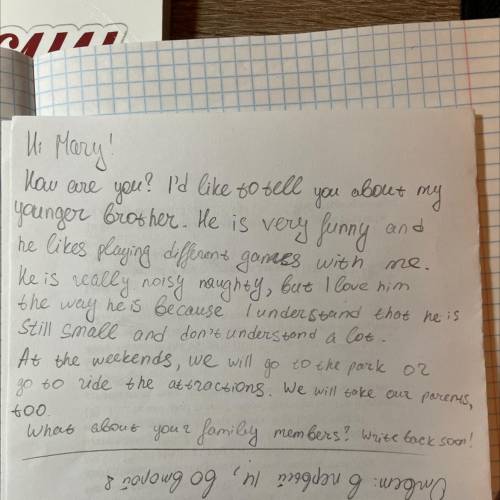 Hi Mary!
How are you? I'd like to tell you about my
younger brother. He is very funny and
he likes playing different games with me.
He is really noisy naughty, but I love him
the way he is because I understand that he is
still small and don't understand a lot.
At the weekends, we will go to the park or
go to ride the attractions. We will take our parents,
too.
What about your family members? Write back soon!
Ответ: в первой 14, во второй 8